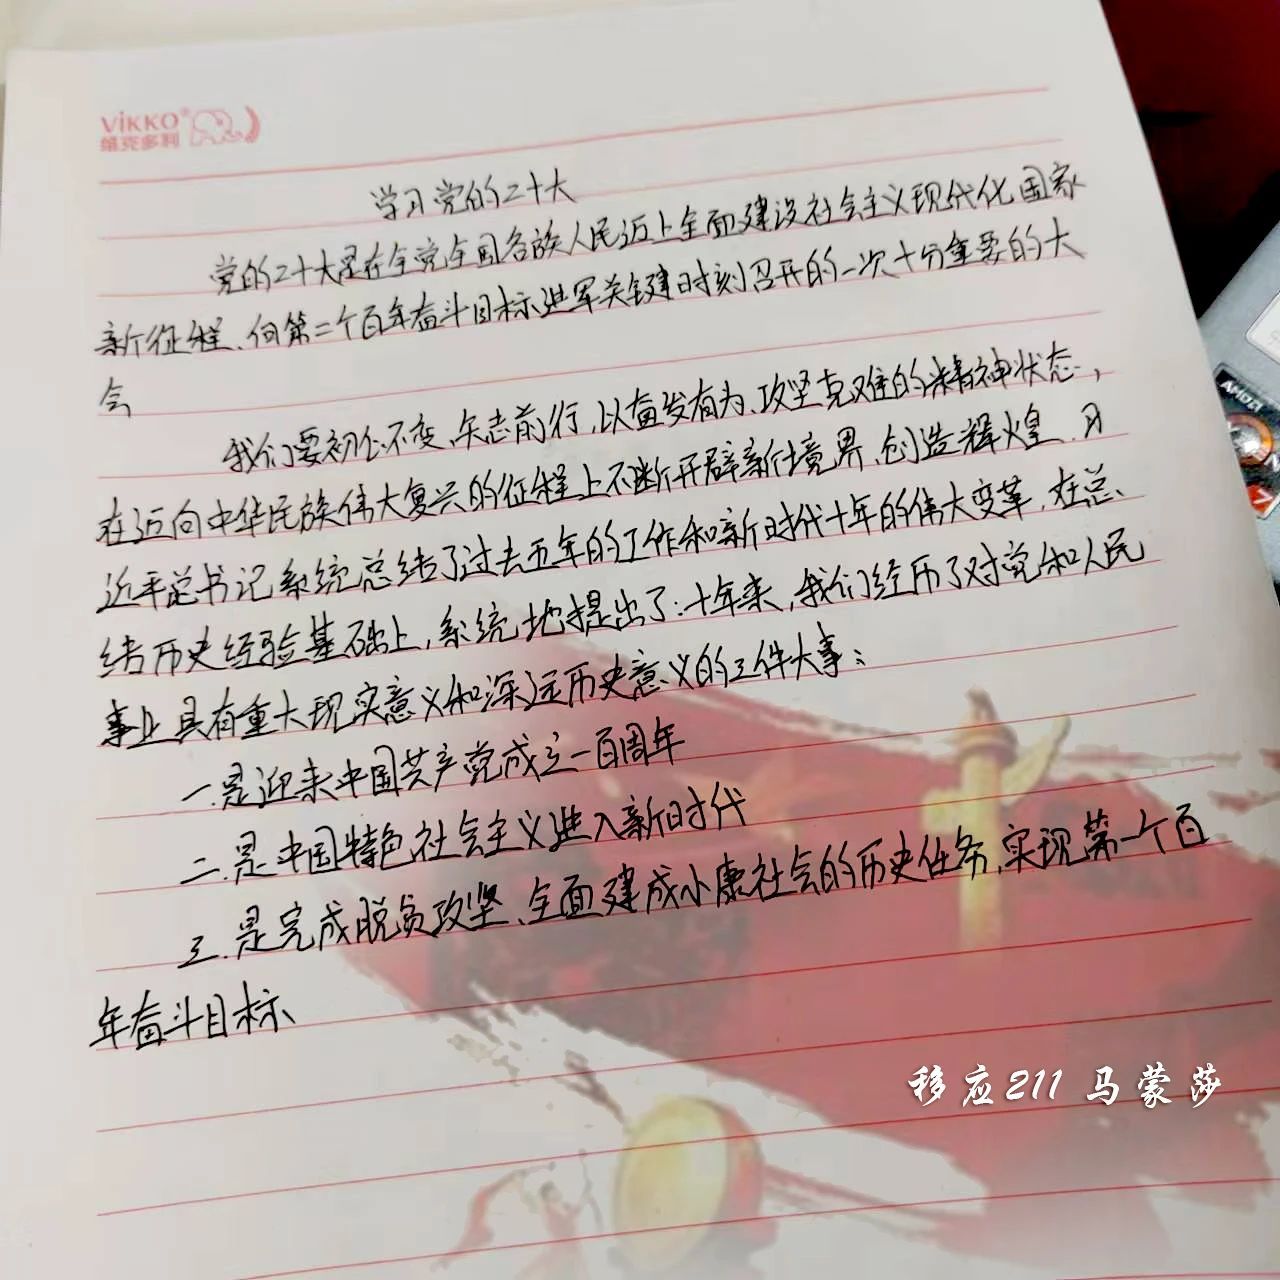 VIKKO®
维克多利
学习党的二十大
党的二十大是在全党全国各族人民迈上全面建设社会主义现代化国家
新征程、向第二个百年奋斗目标进军关键时刻召开的一次十分重要的大
会
我们要初心不变、矢志前行,以奋发有为、攻坚克难的精神状态,
在迈向中华民族伟大复兴的征程上不断开辟新境界、创造辉煌.习
近平总书记系统总结了过去五年的工作和新时代十年的伟大变革,在总
结历史经验基础上,系统地提出了:十年来,我们经历了对党和人民
事业具有重大现实意义和深远历史意义的三件大事:
一.是迎来中国共产党成立一百周年
二.是中国特色社会主义进入新时代
三.是完成脱贫攻坚、全面建成小康社会的历史任务,实现第一个百
年奋斗目标、
移应211 马蒙莎
AMD